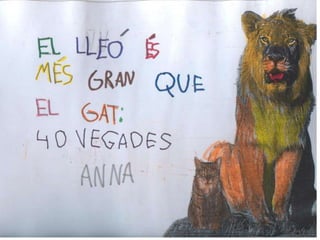 EL LLEÓ ÉS
MÉS GRAN QUE
EL GAT:
40 VEGADES
ANNA